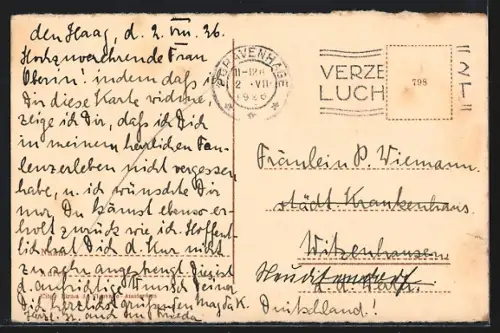 den Haag, d. 2. VIII. 36.
Hochzuverehrende Frau
Oberin! indem daß ich
Dir diese Karte widme,
zeige ich Dir, daß ich Dich
in meinem herrlichen Fau-
lenzerleben nicht vergessen
habe, u. ich wünschte Dir
nur, Du kämst ebenso er-
holt zurück wie ich. Hoffent-
lich hat Dich d. Kur nicht
zu sehr angestrengt. Dies ist
d. aufrichtige Wunsch Deiner
Dich herzlichst grüßenden Magda K.
Herzl. und Frieda
'S-GRAVENHAGE
11-12
2 VII
1936
VERZE
LUCH
798
Fräulein P. Wiemann
städt. Krankenhaus
Witzenhausen
Deutschland!